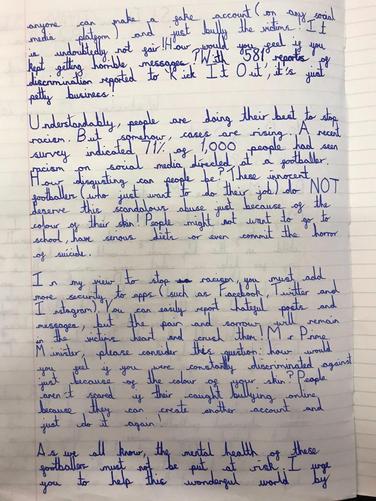 anyone can make a fake account (on any social
media platform) and just bully the victims. It
is undoubtedly not fair! How would you feel if you
kept getting horrible messages? With 581 reports of
discrimination reported to Kick It Out, it's just
petty business!
Understandably, people are doing their best to stop
racism. But somehow, cases are rising. A recent
survey indicated 71% of 1,000 people had seen
racism on social media directed at a footballer.
How disgusting can people be? These innocent
footballers (who just want to do their job) do NOT
deserve this scandalous abuse just because of the
colour of their skin. People might not want to go to
school, have serious diets or even commit the horror
of suicide.
In my view to stop racism, you must add
more security to apps (such as Facebook, Twitter and
Instagram). You can easily report hateful posts and
messages, but the pain and sorrow will remain
in the victims heart and crush them! Mr Prime
Minister, please consider this question: how would
you feel if you were constantly discriminated against
just because of the colour of your skin? People
aren't scared if their caught bullying online,
because they can create another account and
just do it again!
As we all know, the mental health of these
footballers must not be put at risk; I urge
you to help this wonderful world by